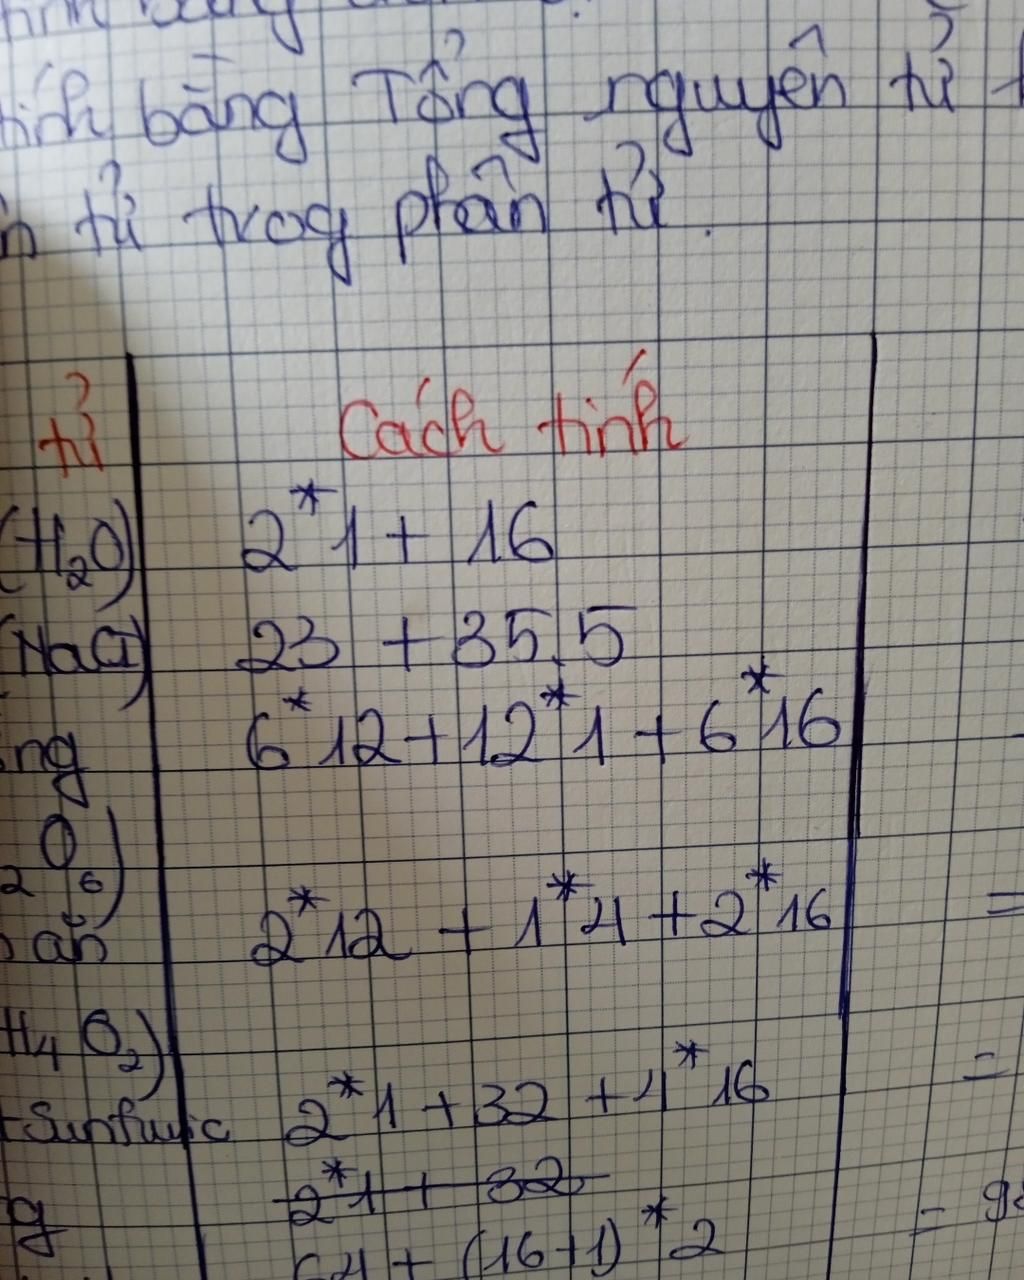 tính bằng Tổng nguyên tử
tử trog phân tử.
tử Cách tính
(H₂O) 2*1 + 16
(NaCl) 23 + 35,5
6*12+12*1+6*16
ng
O
2 6)
ấn 2*12 + 1*4 +2*16 =
H₄O₂)
Sunfuric 2*1 +32 +4*16 =
2*1 + 32
g 64 + (16+1)*2 =